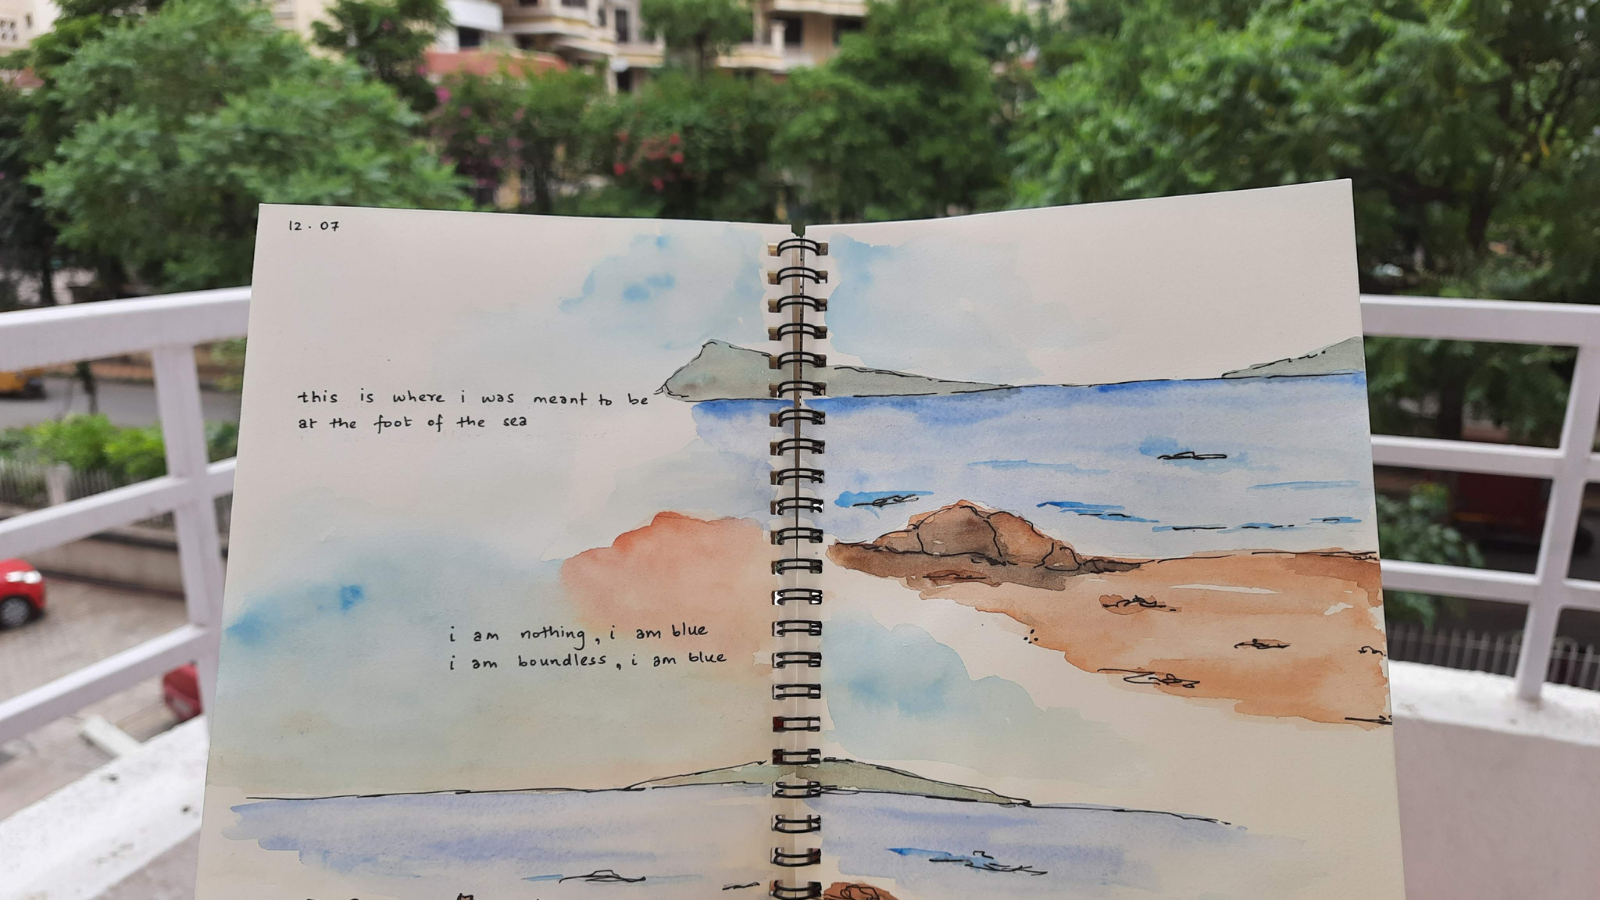 12.07
this is where i was meant to be
at the foot of the sea
i am nothing, i am blue
i am boundless, i am blue